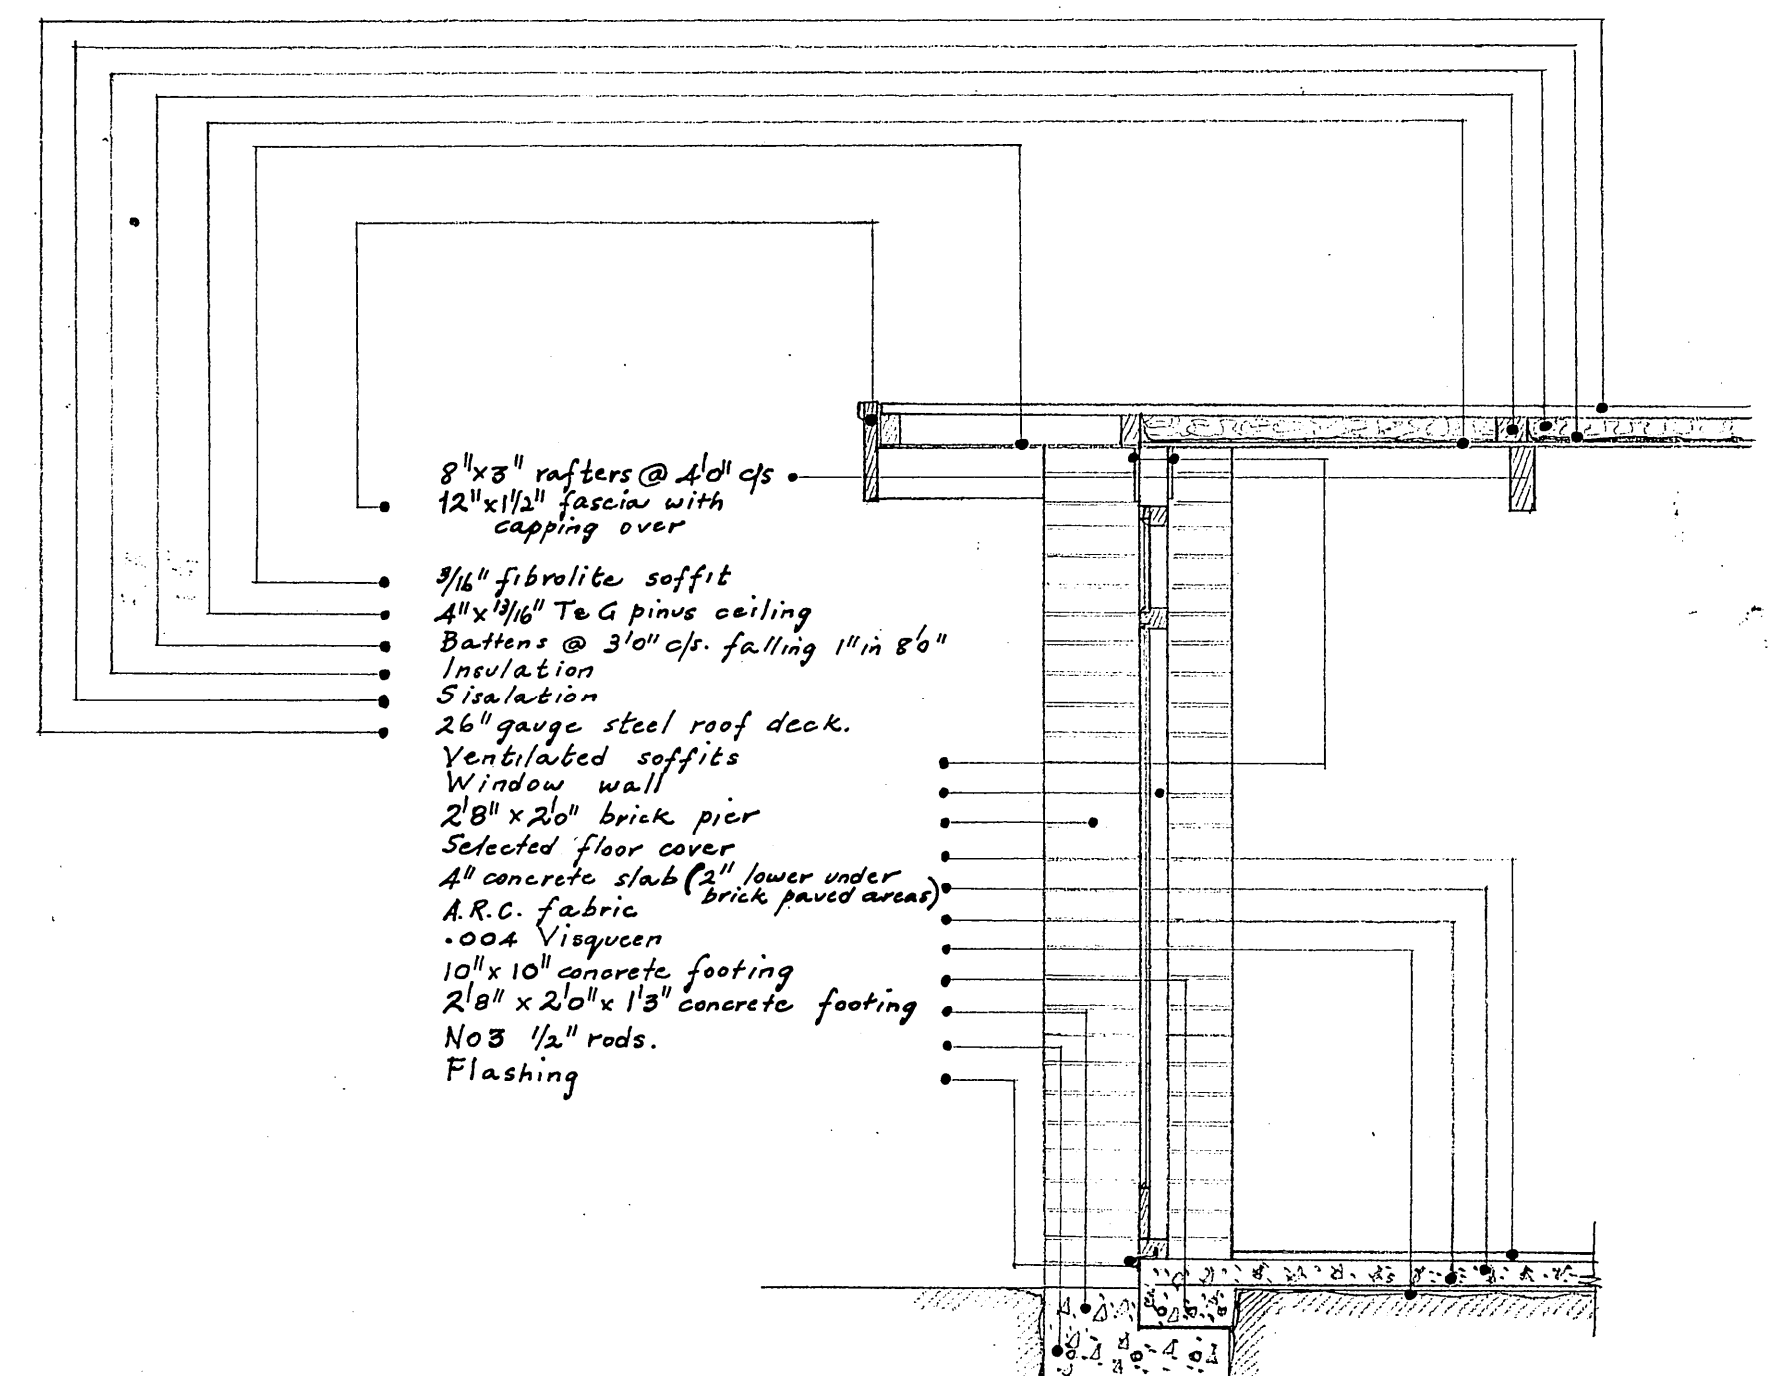 8"x3" rafters @ 4'0" c/s
12"x1½" fascia with
capping over
3/16" fibrolite soffit
4"x 13/16" TeG pinus ceiling
Battens @ 3'0" c/s. falling 1" in 8'0"
Insulation
Sisalation
26" gauge steel roof deck.
Ventilated soffits
Window wall
2'8" x 2'0" brick pier
Selected floor cover
4" concrete slab (2" lower under
brick paved areas)
A.R.C. fabric
.004 Visqueen
10"x 10" concrete footing
2'8" x 2'0" x 1'3" concrete footing
No 3 1/2" rods.
Flashing